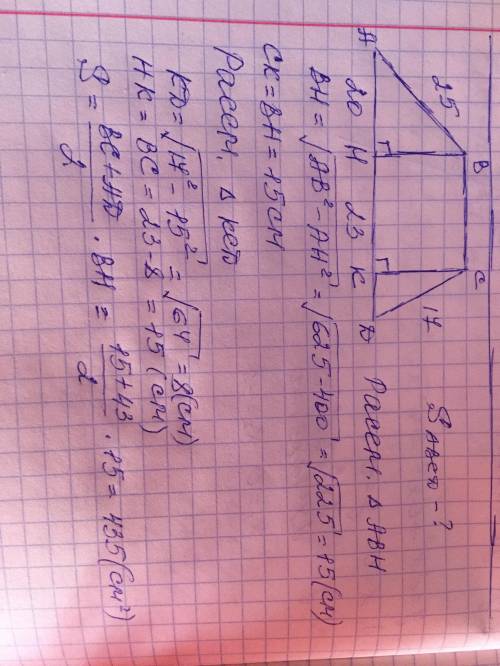 S ABCD - ?
B
C
25
17
A
20
H
23
K
D
Рассм. Δ ABH
BH = √AB² - AH² = √625 - 400 = √225 = 15 (см)
CK = BH = 15 см
Рассм. Δ КСD
KD = √17² - 15² = √64 = 8 (см)
HK = BC = 23 - 8 = 15 (см)
S = BC + AD / 2 · BH = 15 + 43 / 2 · 15 = 435 (см²)